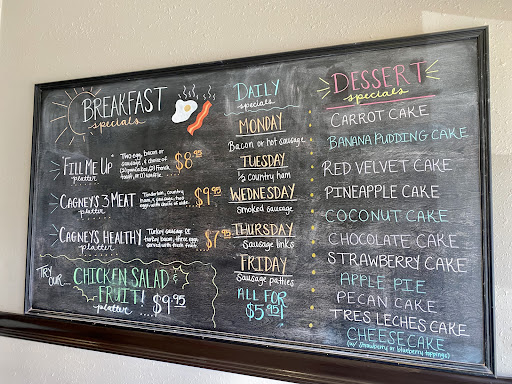 BREAKFAST
specials
FILL ME UP
platter
Two egg, bacon or
sausage, & choice of
(2) pancakes, (2) French
toast, or (1) waffle
$8.95
CAGNEYS 3 MEAT
platter
Tenderloin, country
ham, & sausage, two
eggs with choice of side
$9.95
CAGNEYS HEALTHY
platter
Turkey sausage or
turkey bacon, three eggs
served with fresh fruit
$7.95
TRY
OUR...
CHICKEN SALAD
& FRUIT!
platter
$9.95
DAILY
specials
MONDAY
Bacon or hot sausage
TUESDAY
1/2 country ham
WEDNESDAY
Smoked sausage
THURSDAY
Sausage links
FRIDAY
Sausage patties
ALL FOR
$5.95!
DESSERT
specials
CARROT CAKE
BANANA PUDDING CAKE
RED VELVET CAKE
PINEAPPLE CAKE
COCONUT CAKE
CHOCOLATE CAKE
STRAWBERRY CAKE
APPLE PIE
PECAN CAKE
TRES LECHES CAKE
CHEESECAKE
(w/ strawberry or blueberry toppings)